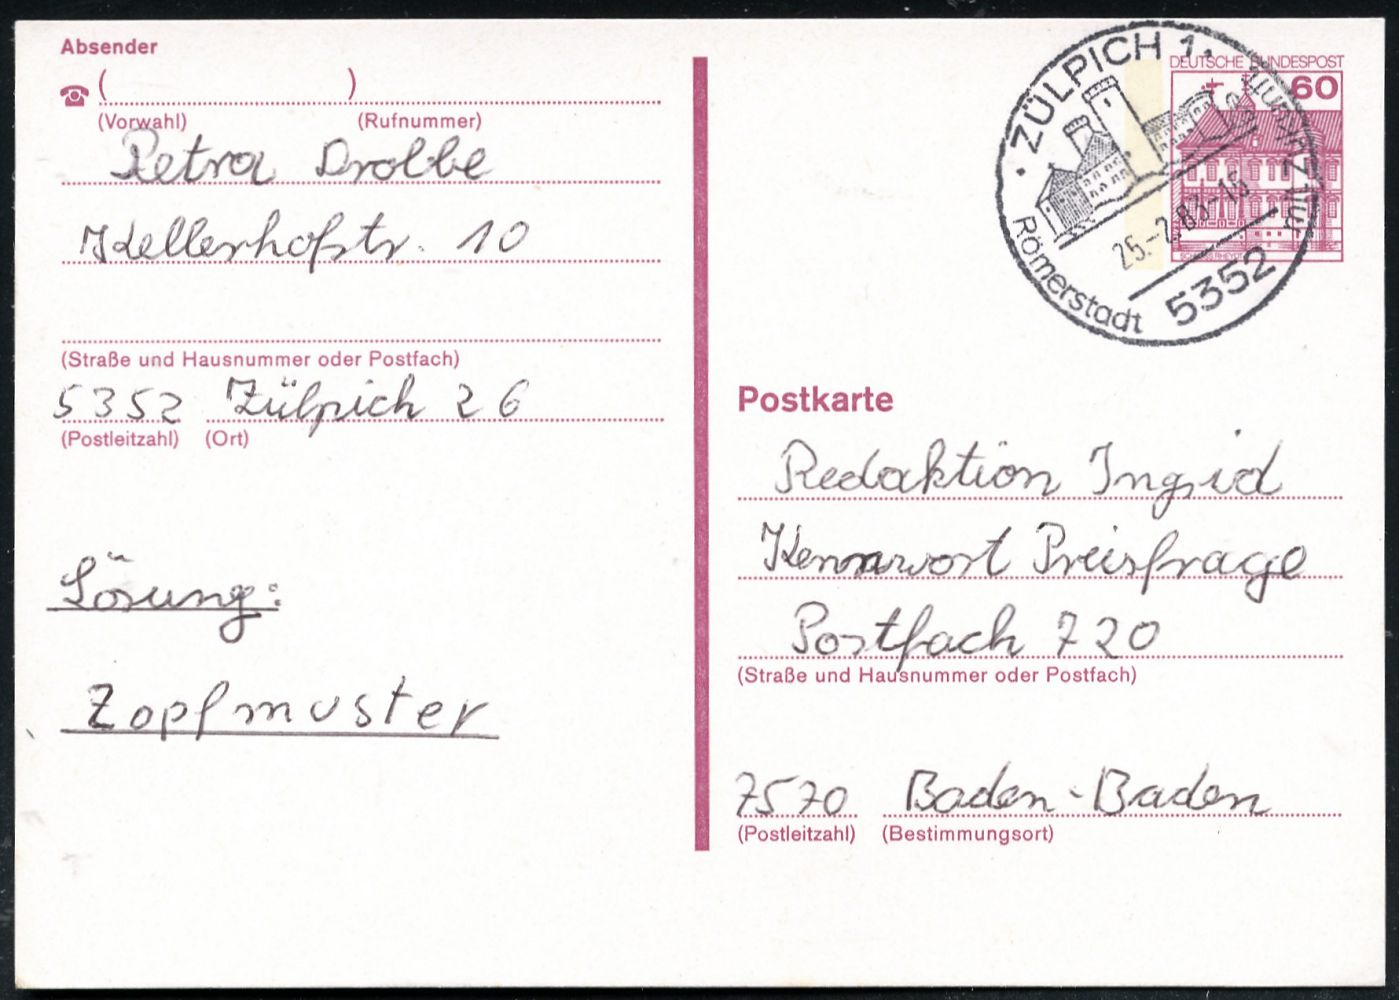 Absender
( )
(Vorwahl) (Rufnummer)
Petra Drolbe
Kellerhofstr. 10
(Straße und Hausnummer oder Postfach)
5352 Zülpich 26
(Postleitzahl) (Ort)
Lösung:
Zopfmuster
ZÜLPICH 1
Römerstadt
25.-2.83-15
5352
DEUTSCHE BUNDESPOST
60
Postkarte
Redaktion Ingrid
Kennwort Preisfrage
Postfach 720
(Straße und Hausnummer oder Postfach)
7570 Baden-Baden
(Postleitzahl) (Bestimmungsort)